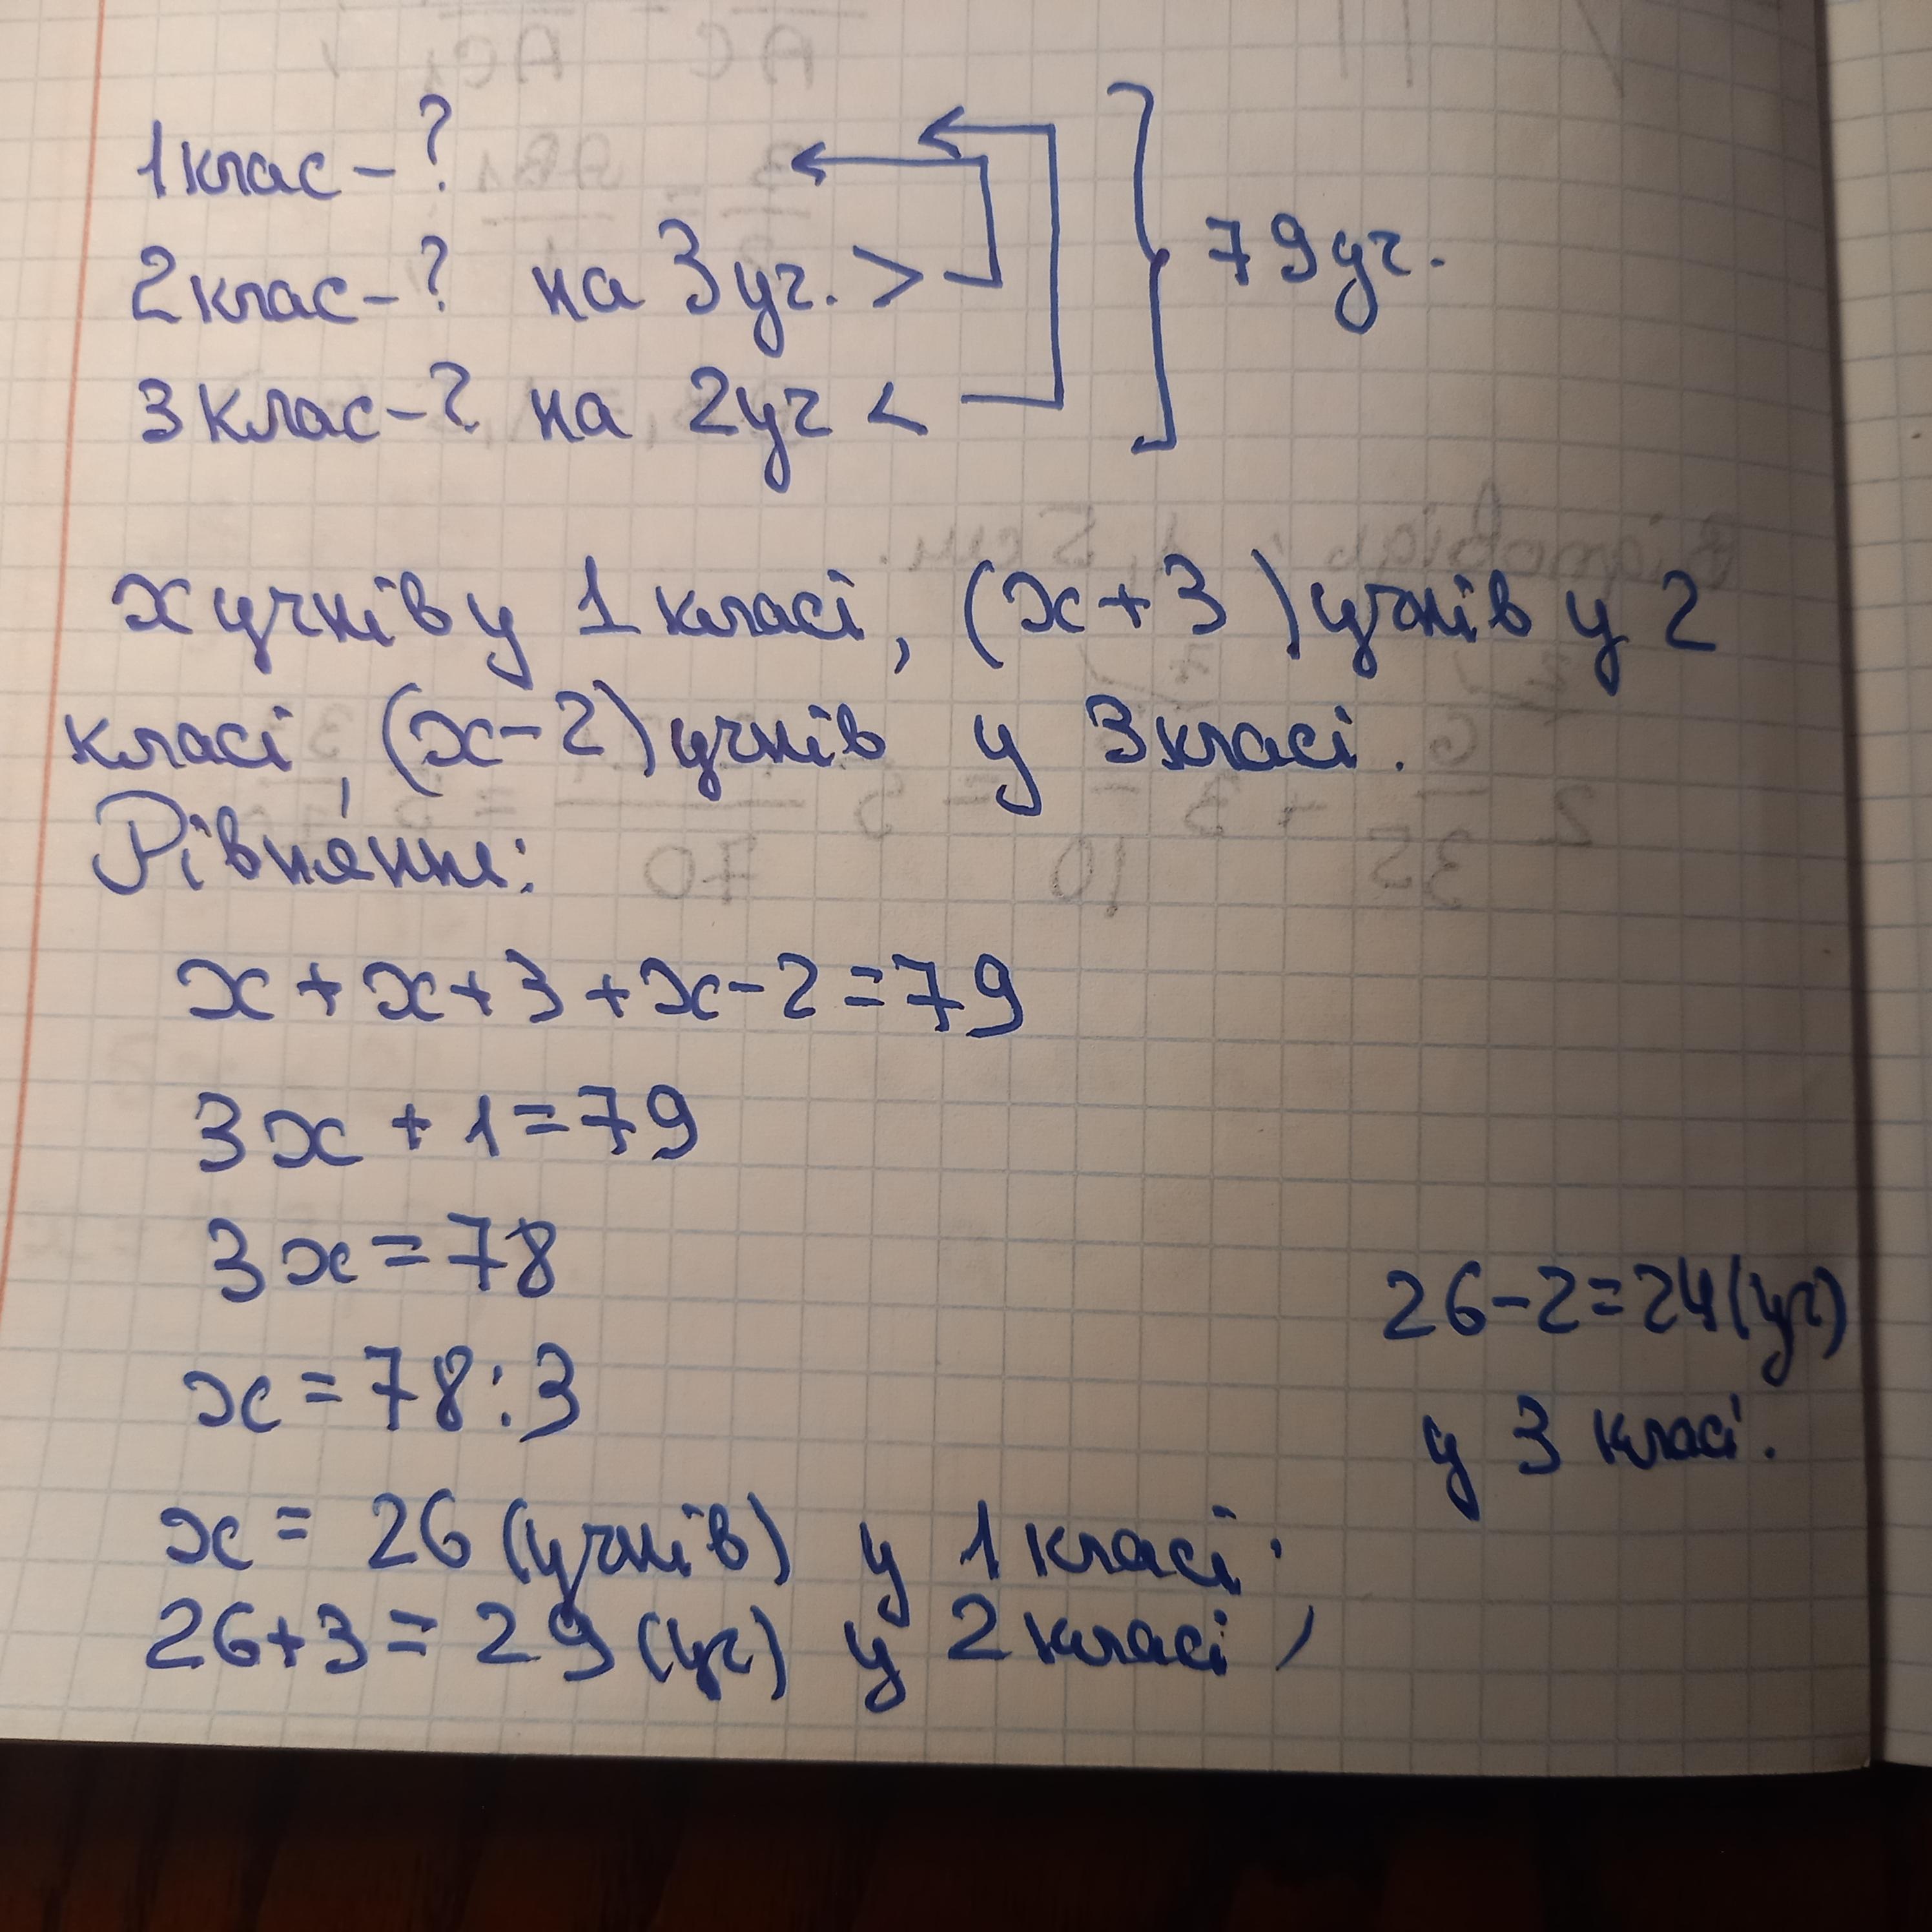 1клас-?
2клас-? на 3уч. >
3клас-? на 2уч <
79уч.
x учнів у 1 класі, (x+3) учнів у 2
класі, (x-2) учнів у 3класі.
Рівняння:
x + x+3 +x-2=79
3x + 1=79
3x=78
x=78:3
x= 26 (учнів) у 1 класі;
26+3= 29 (уч) у 2 класі,
26-2=24(уч)
у 3 класі.